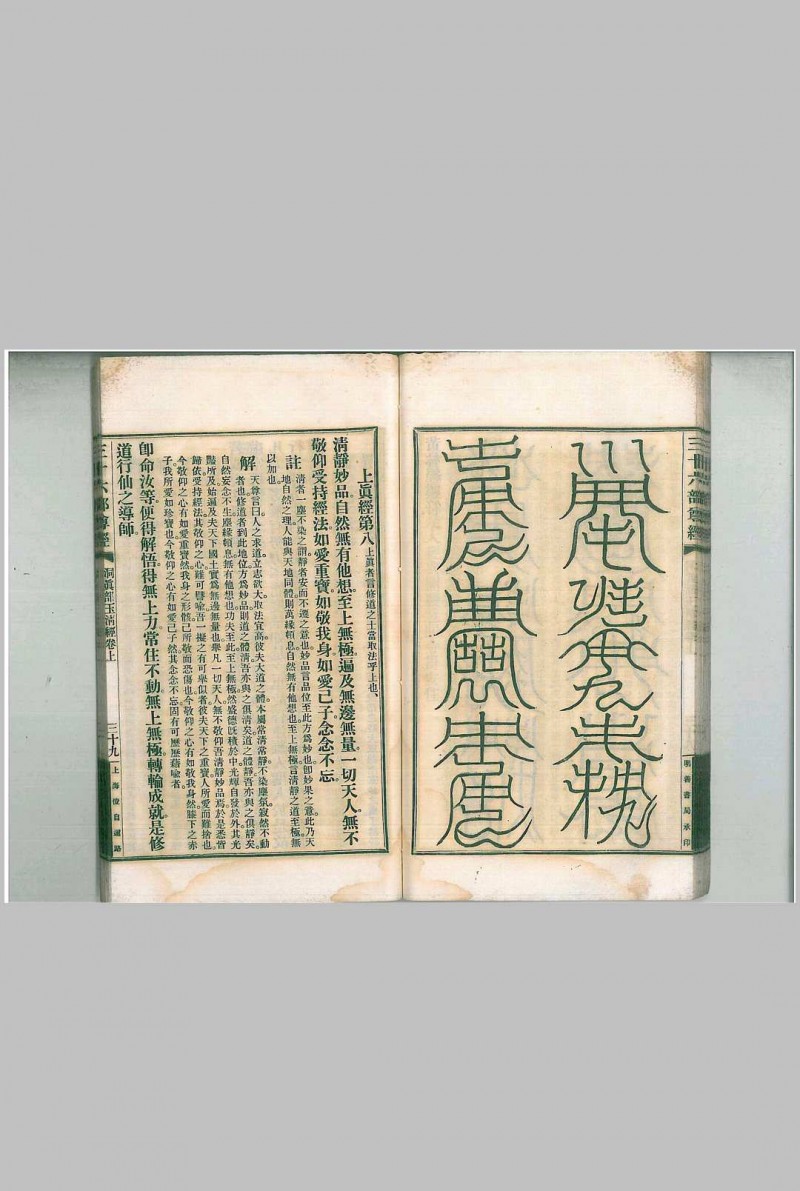 三十六部尊經
明善書局承印
上眞經第八上眞者言修道之士當取法乎上也、
淸靜妙品自然無有他想。至上無極。遍及無邊無量。一切天人。無不
敬仰受持經法。如愛重寶。如敬我身。如愛己子。念念不忘。
註 淸者一塵不染之謂靜者安而不遷之意也妙品言品位至此方爲妙也卽妙果之意此乃天
地自然之理人能與天地同體則萬緣頓息自然無有他想也至上無極言淸靜之道至極無
以加也
解 天尊言曰人之求道立志欲大取法宜高彼夫大道之體本屬常淸常靜。不染塵氛寂然不動
者也修道者到此地位方爲妙品則道之體淸吾亦與之俱淸矣道之體靜吾亦與之俱靜矣。
自然妄念不生塵緣頓息無有他想也功夫至此至上無極然盛德旣積於中光輝自發於外其光
之所及始遍及夫天下國土實爲無邊無量也舉凡一切天人無不敬仰吾淸靜妙品焉於是悉皆
歸依受持經法其敬仰之心難可譬喩吾一擬之有可舉似者彼夫天下之重寶人所愛而難捨也
今敬仰之心有如愛重寶然我身之形體己所敬而恐傷也今敬仰之心有如敬我身然膝下之赤
子我所愛如珍寶也今敬仰之心有如愛己子然其念念不忘固有可歷歷藉喩者
卽命汝等。便得解悟。得無上方。常住不動。無上無極。轉輪成就。是修
道行仙之導師。
三十六部尊經
洞眞部玉淸經卷上
三十九
上海